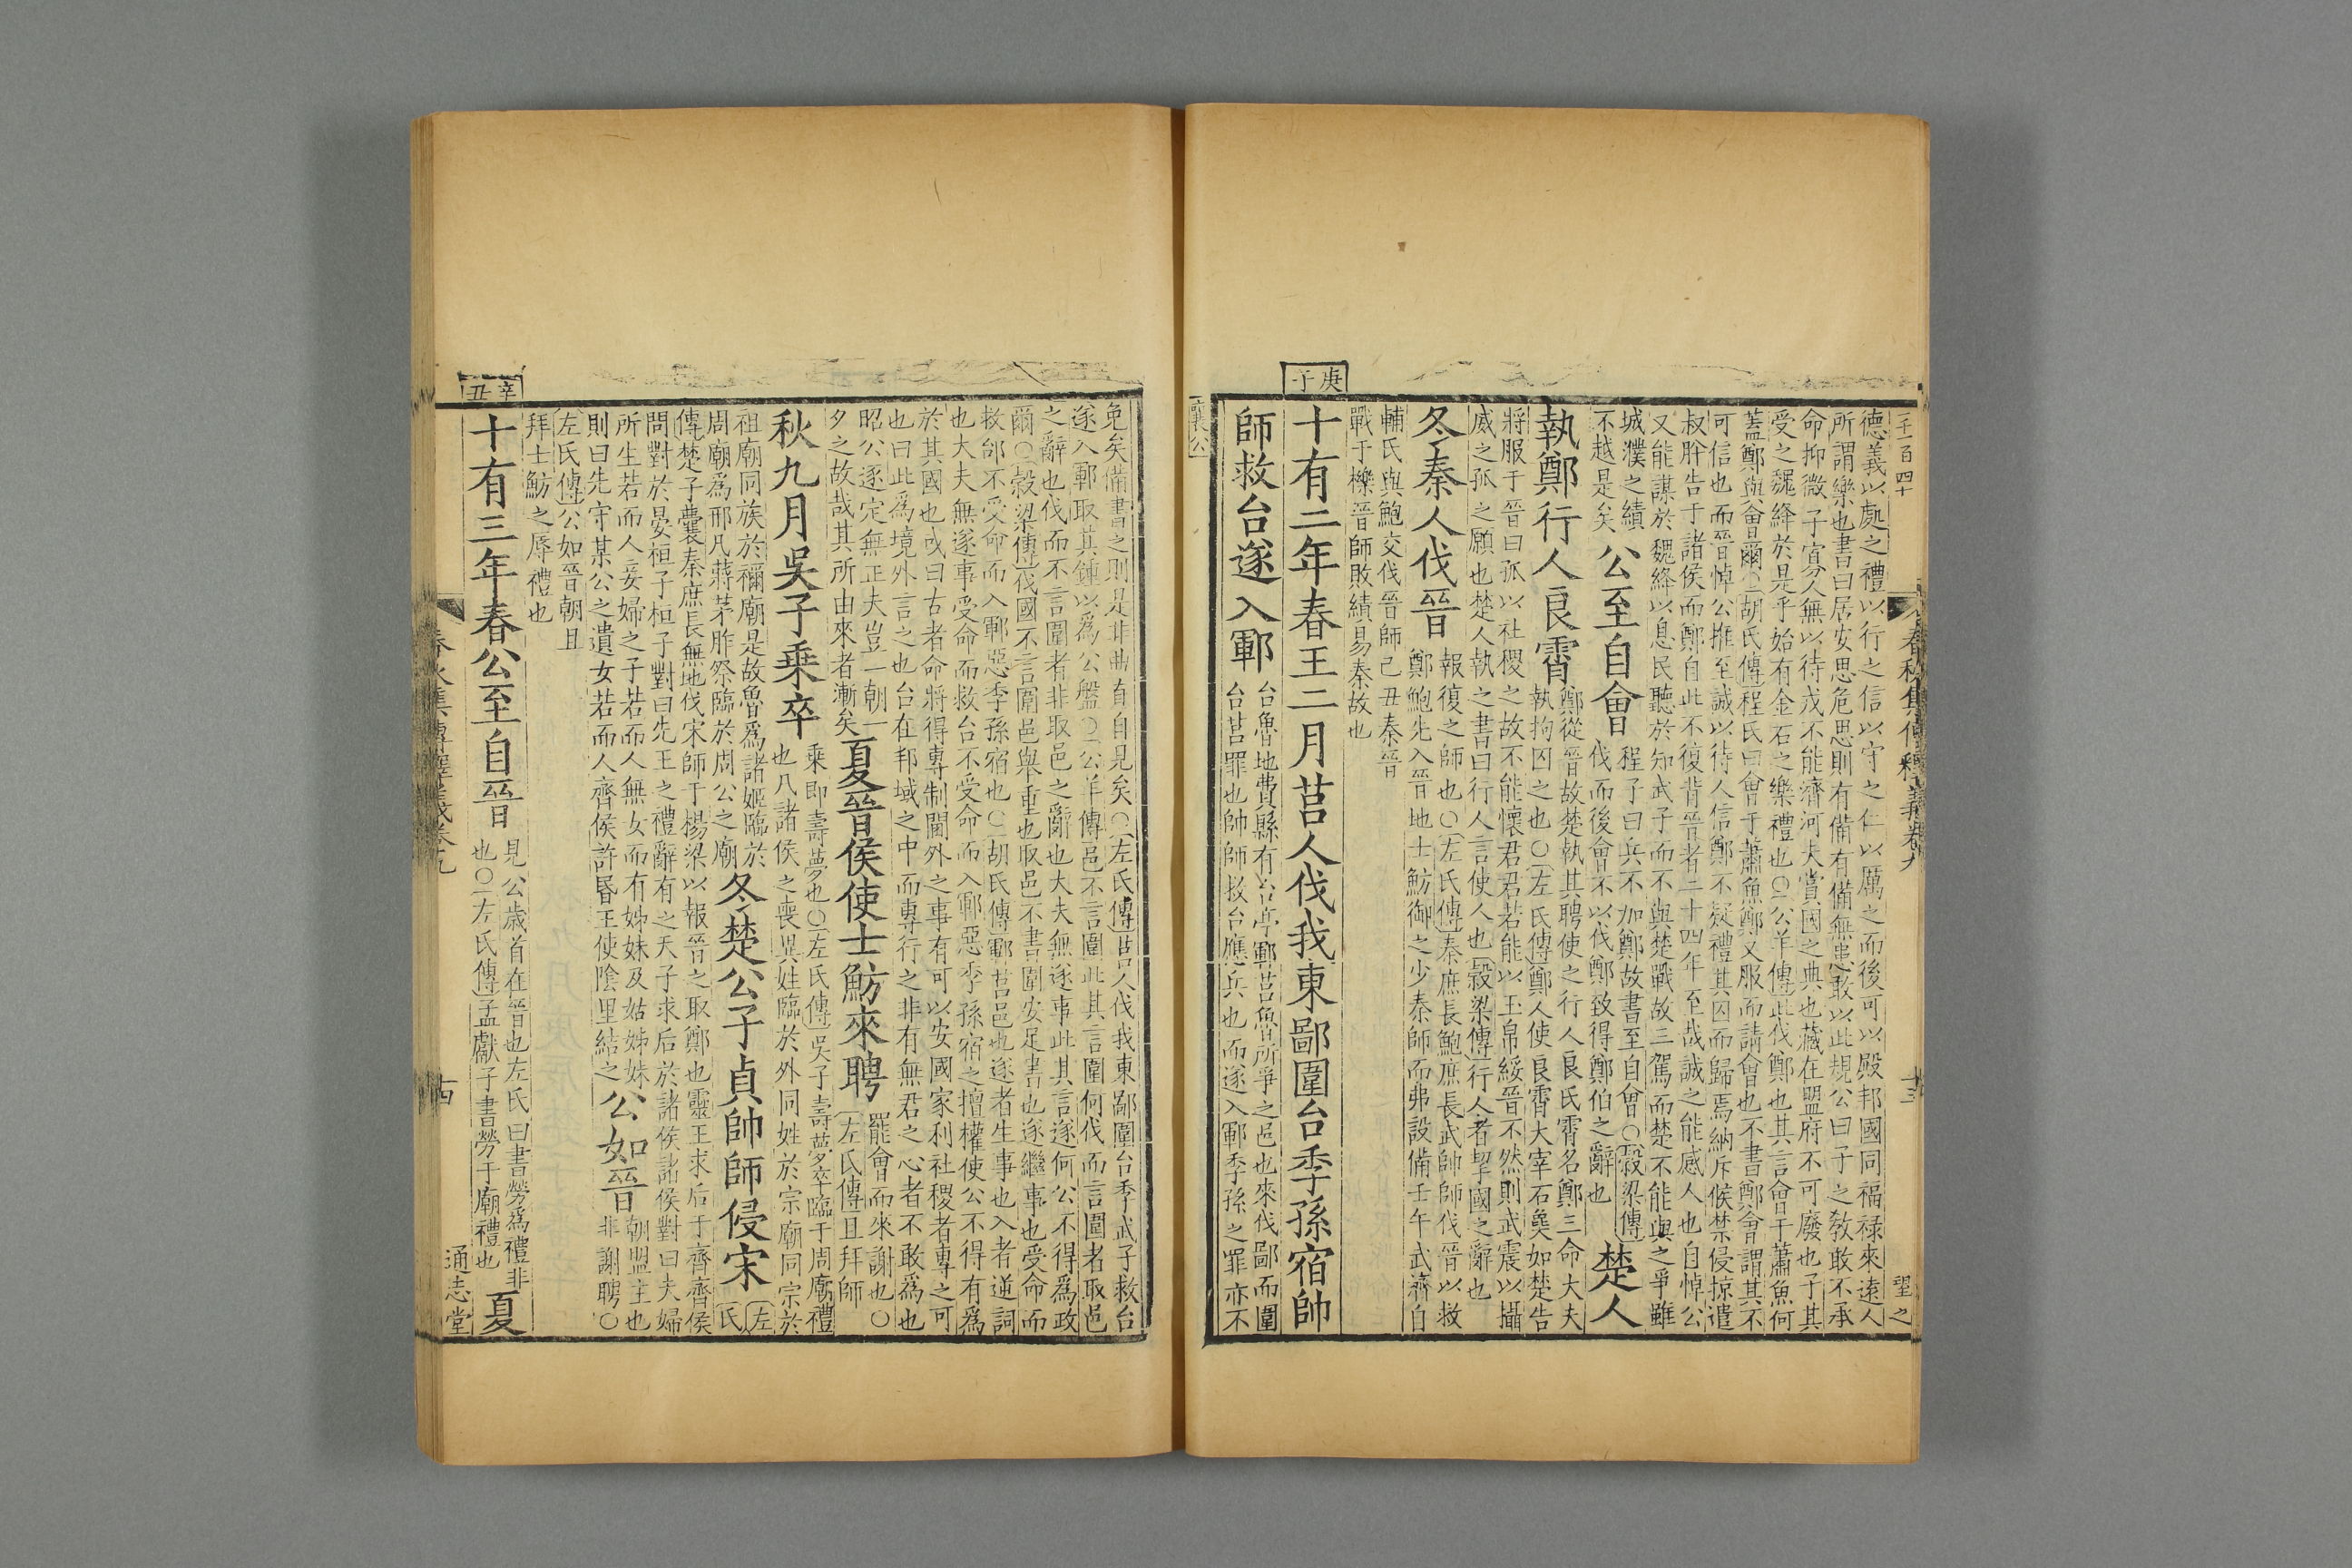 德義以處之禮以行之信以守之仁以厲之而後可以殿邦國同福祿來遠人
所謂樂也書曰居安思危思則有備有備無患敢以此規公曰子之敎敢不承
命抑微子寡人無以待戎不能濟河夫賞國之典也藏在盟府不可廢也子其
受之魏絳於是乎始有金石之樂禮也○公羊傳此伐鄭也其言會于蕭魚何
蓋鄭與會爾○胡氏傳程氏曰會于蕭魚鄭又服而請會也不書鄭會謂其不
可信也而晉悼公推至誠以待人信鄭不疑禮其囚而歸焉納斥候禁侵掠遣
叔肸告于諸侯而鄭自此不復背晉者二十四年至哉誠之能感人也自悼公
又能謀於魏絳以息民聽於知武子而不與楚戰故三駕而楚不能與之爭雖
城濮之績
不越是矣
公至自會
程子曰兵不加鄭故書至自會○穀梁傳
伐而後會不以伐鄭致得鄭伯之辭也
楚人
執鄭行人良霄
鄭從晉故楚執其聘使之行人良氏霄名鄭三命大夫
執拘囚之也○左氏傳鄭人使良霄大宰石㚟如楚告
將服于晉曰孤以社稷之故不能懷君君若能以玉帛綏晉不然則武震以攝
威之孤之願也楚人執之書曰行人言使人也穀梁傳行人者挈國之辭也
冬秦人伐晉
報復之師也○左氏傳秦庶長鮑庶長武帥師伐晉以救
鄭鮑先入晉地士魴御之少秦師而弗設備壬午武濟自
輔氏與鮑交伐晉師己丑秦晉
戰于櫟晉師敗績易秦故也
庚子
十有二年春王二月莒人伐我東鄙圍台季孫宿帥
師救台遂入鄆
台魯地費縣有台亭鄆莒魯所爭之邑也來伐鄙而圍
台莒罪也帥師救台應兵也而遂入鄆季孫之罪亦不
襄公
二千一百四十
春秋集傳釋義卷九
十三
望之
免矣備書之則是非曲直自見矣○左氏傳莒人伐我東鄙圍台季武子救台
遂入鄆取其鐘以爲公盤○公羊傳邑不言圍此其言圍何伐而言圍者取邑
之辭也伐而不言圍者非取邑之辭也大夫無遂事此其言遂何公不得爲政
爾○穀梁傳伐國不言圍邑舉重也取邑不書圍安足書也遂繼事也受命而
救邰不受命而入鄆惡季孫宿也○胡氏傳鄆莒邑也遂者生事也入者逆詞
也大夫無遂事受命而救台不受命而入鄆惡季孫宿之擅權使公不得有爲
於其國也或曰古者命將得專制閫外之事有可以安國家利社稷者專之可
也曰此爲境外言之也台在邦域之中而專行之非有無君之心者不敢爲也
昭公逐定無正夫豈一朝一
夕之故哉其所由來者漸矣
夏晉侯使士魴來聘
罷會而來謝也○
左氏傳且拜師
秋九月吳子乘卒
乘即壽夢也○左氏傳吳子壽夢卒臨于周廟禮
也凡諸侯之喪異姓臨於外同姓於宗廟同宗於
祖廟同族於禰廟是故魯爲諸姬臨於
周廟爲邢凡蔣茅胙祭臨於周公之廟
冬楚公子貞帥師侵宋
左
氏
傳楚子囊秦庶長無地伐宋師于楊梁以報晉之取鄭也靈王求后于齊齊侯
問對於晏桓子桓子對曰先王之禮辭有之天子求后於諸侯諸侯對曰夫婦
所生若而人妾婦之子若而人無女而有姊妹及姑姊妹
則曰先守某公之遺女若而人齊侯許昏王使陰里結之
公如晉
朝盟主也
非謝聘○
左氏傳公如晉朝且
拜士魴之辱禮也
辛丑
十有三年春公至自晉
見公歲首在晉也左氏曰書勞爲禮非
也○左氏傳孟獻子書勞于廟禮也
夏
春秋集傳釋義卷九
十四
通志堂